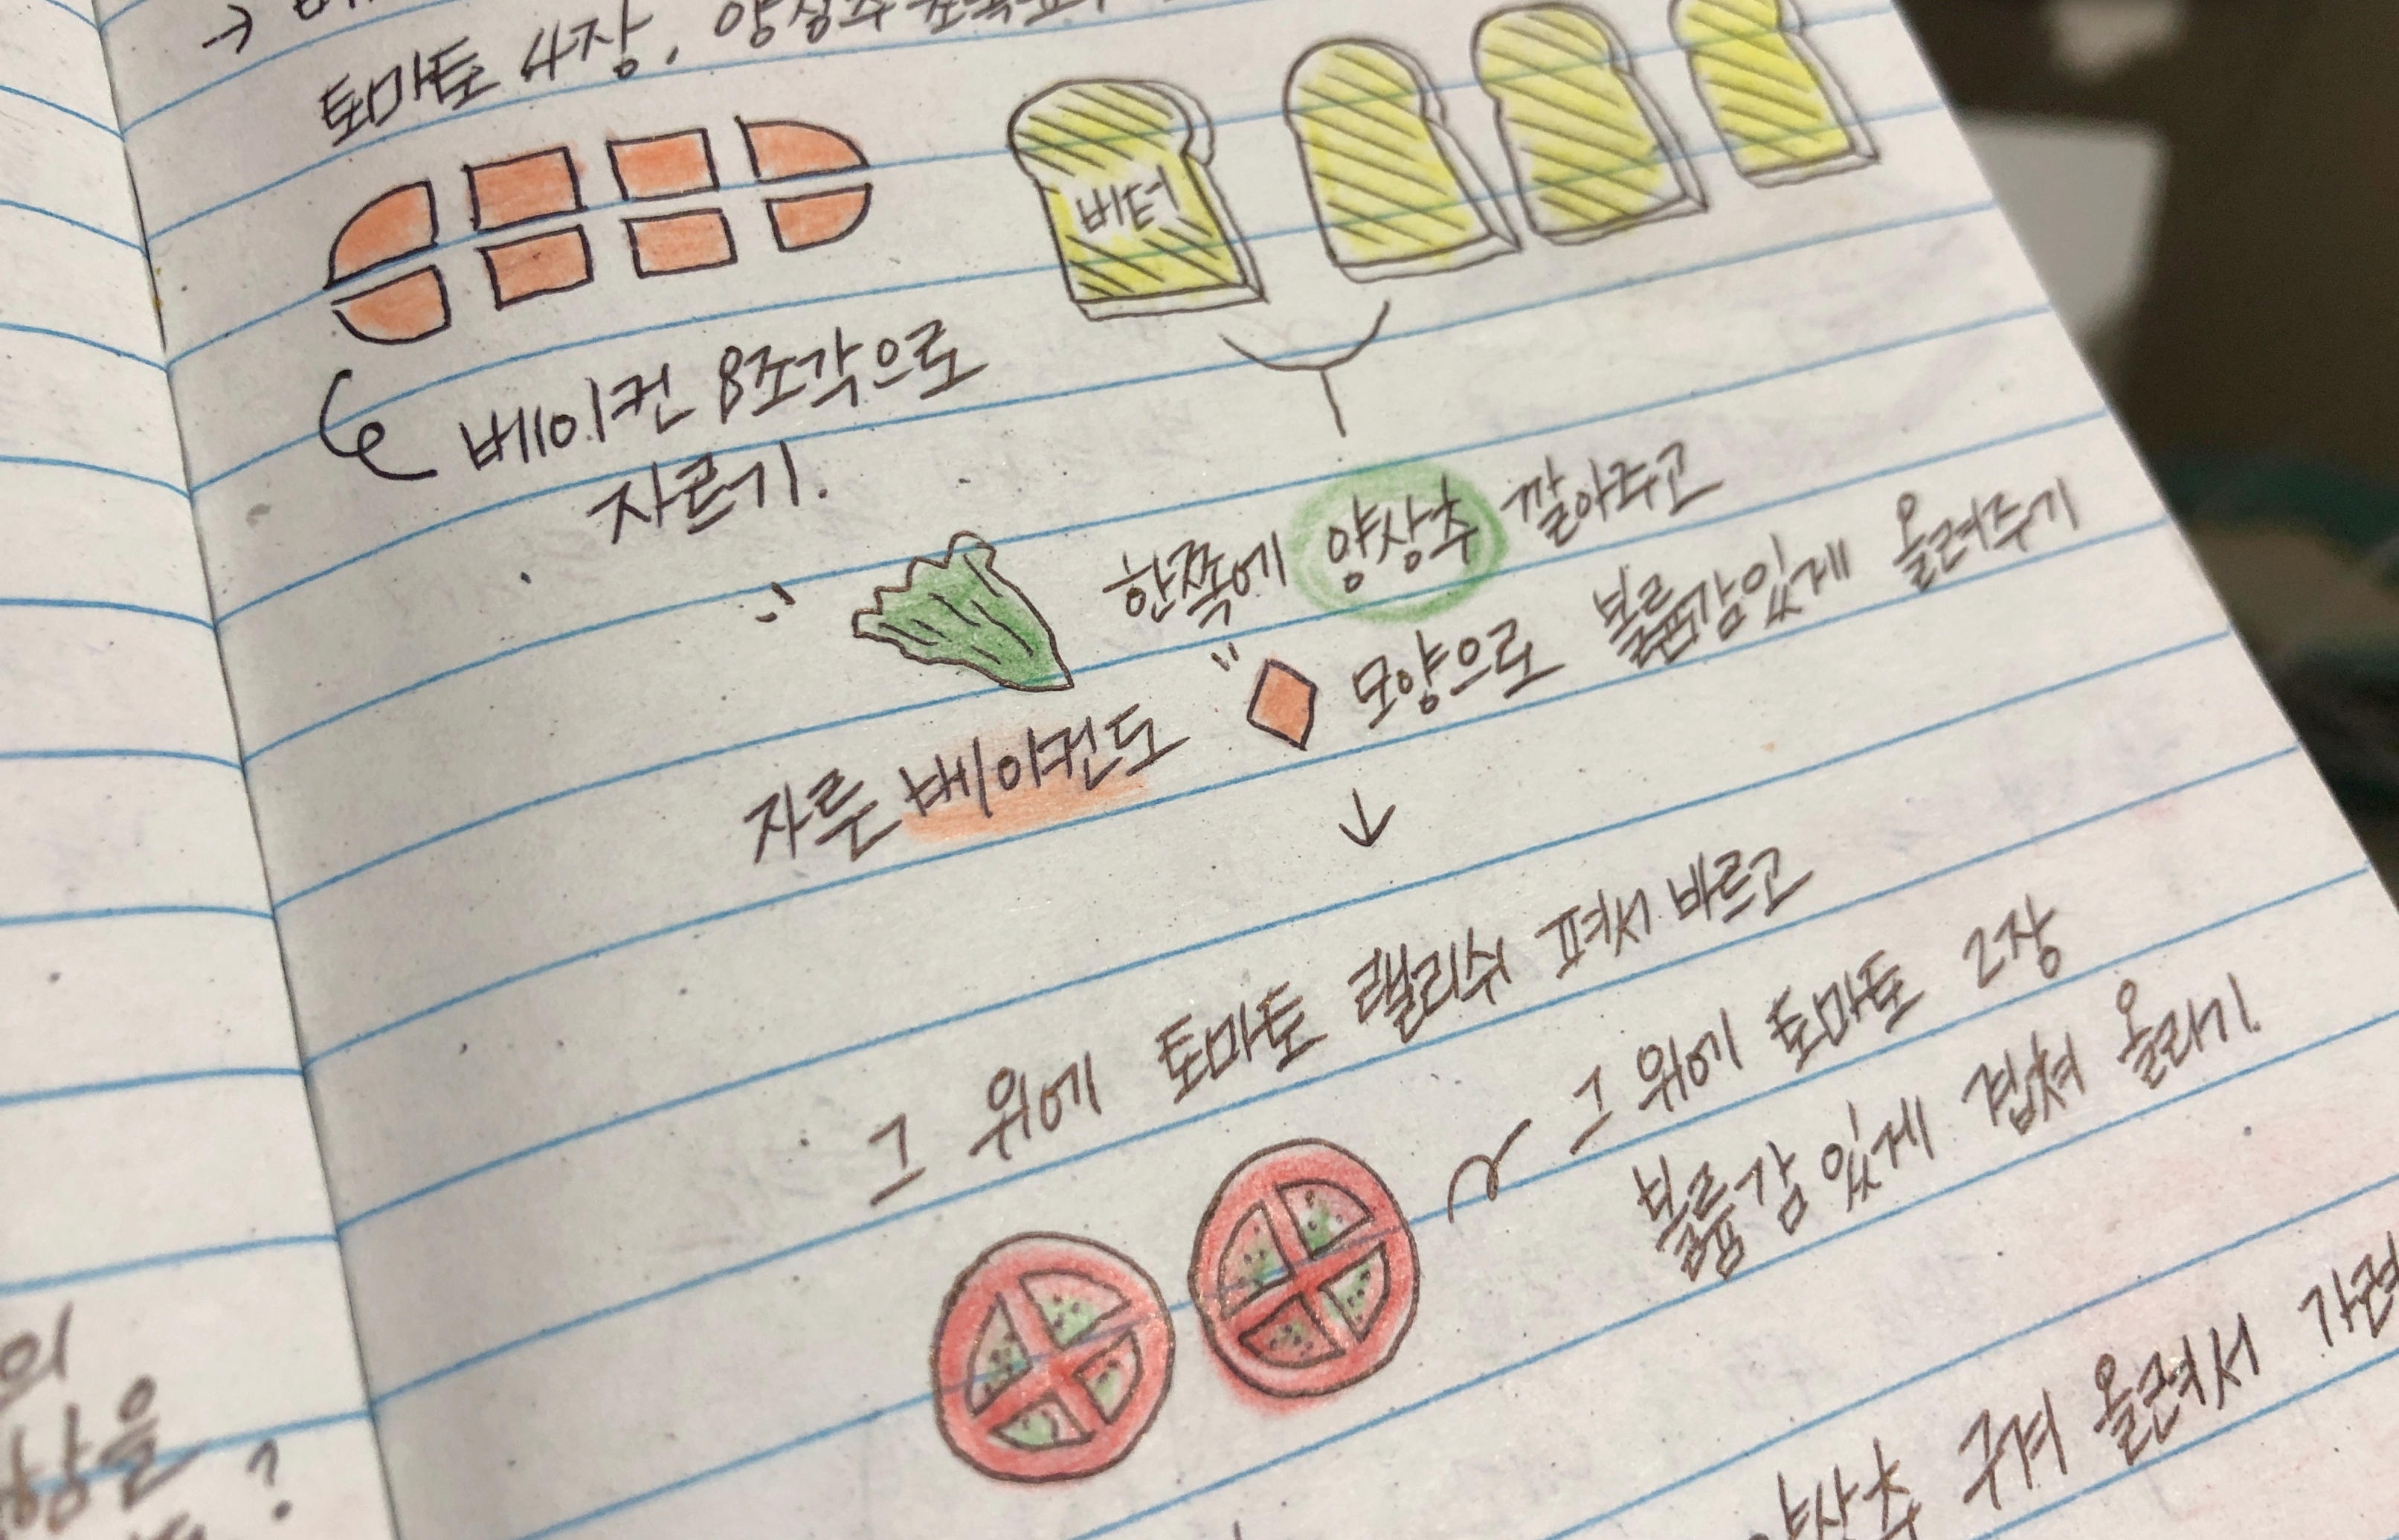 토마토 4장, 양상추
버터
베이컨 8조각으로
자르기.
한쪽에 양상추 깔아주고
자른 베이컨도 " ◇ 모양으로 볼륨감있게 올려주기
↓
그 위에 토마토 랠리쉬 펴서 바르고
그 위에 토마토 2장
볼륨감 있게 겹쳐 올리기.
양상추 구겨 올려서
의
?